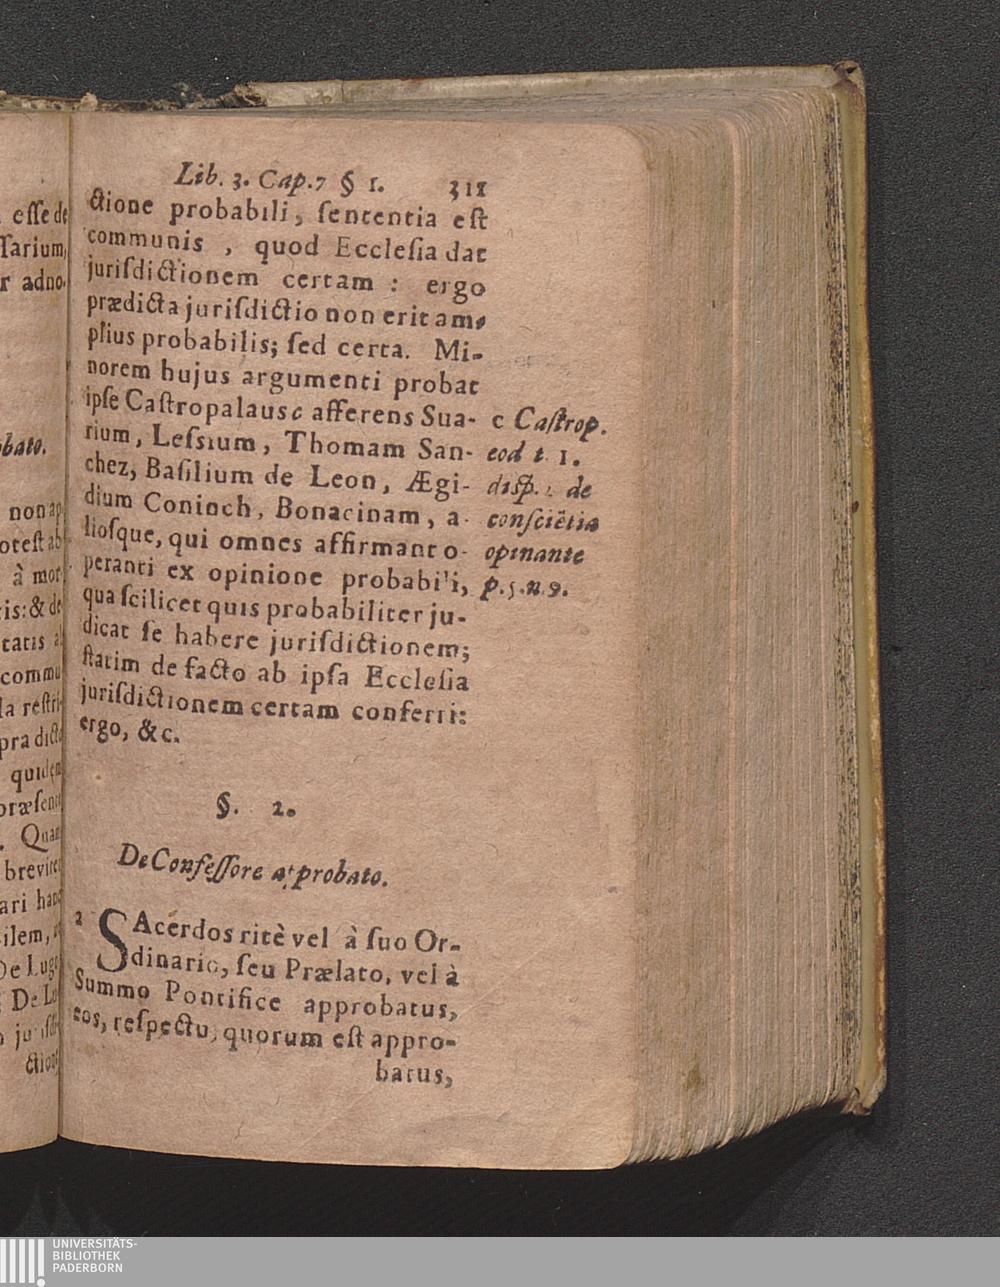 esse de
ssarium,
r adno-
obato.
non ap
otest ab
à mor-
tis: & de
tatis a
commu
la restri-
pra dicta
quidem
præsent
. Quan
brevite
ari hanc
ilem,
De Lugo
De Lu
o jurisdi-
ction
Lib. 3. Cap. 7 § 1. 311
ctione probabili, sententia est
communis , quod Ecclesia dat
jurisdictionem certam : ergo
prædicta jurisdictio non erit am-
plius probabilis; sed certa. Mi-
norem hujus argumenti probat
ipse Castropalaus c afferens Sua-
rium, Lessium, Thomam San-
chez, Basilium de Leon, Ægi-
dium Coninch, Bonacinam, a-
liosque, qui omnes affirmant o-
peranti ex opinione probabili,
qua scilicet quis probabiliter ju-
dicat se habere jurisdictionem;
statim de facto ab ipsa Ecclesia
jurisdictionem certam conferri:
ergo, &c.
c Castrop.
eod t. 1.
disp. de
consciẽtia
opinante
p. 5. n. 9.
§. 2.
De Confessore approbato.
2 SAcerdos ritè vel à suo Or-
dinario, seu Prælato, vel à
Summo Pontifice approbatus,
eos, respectu, quorum est appro-
batus,
UNIVERSITÄTS-
BIBLIOTHEK
PADERBORN